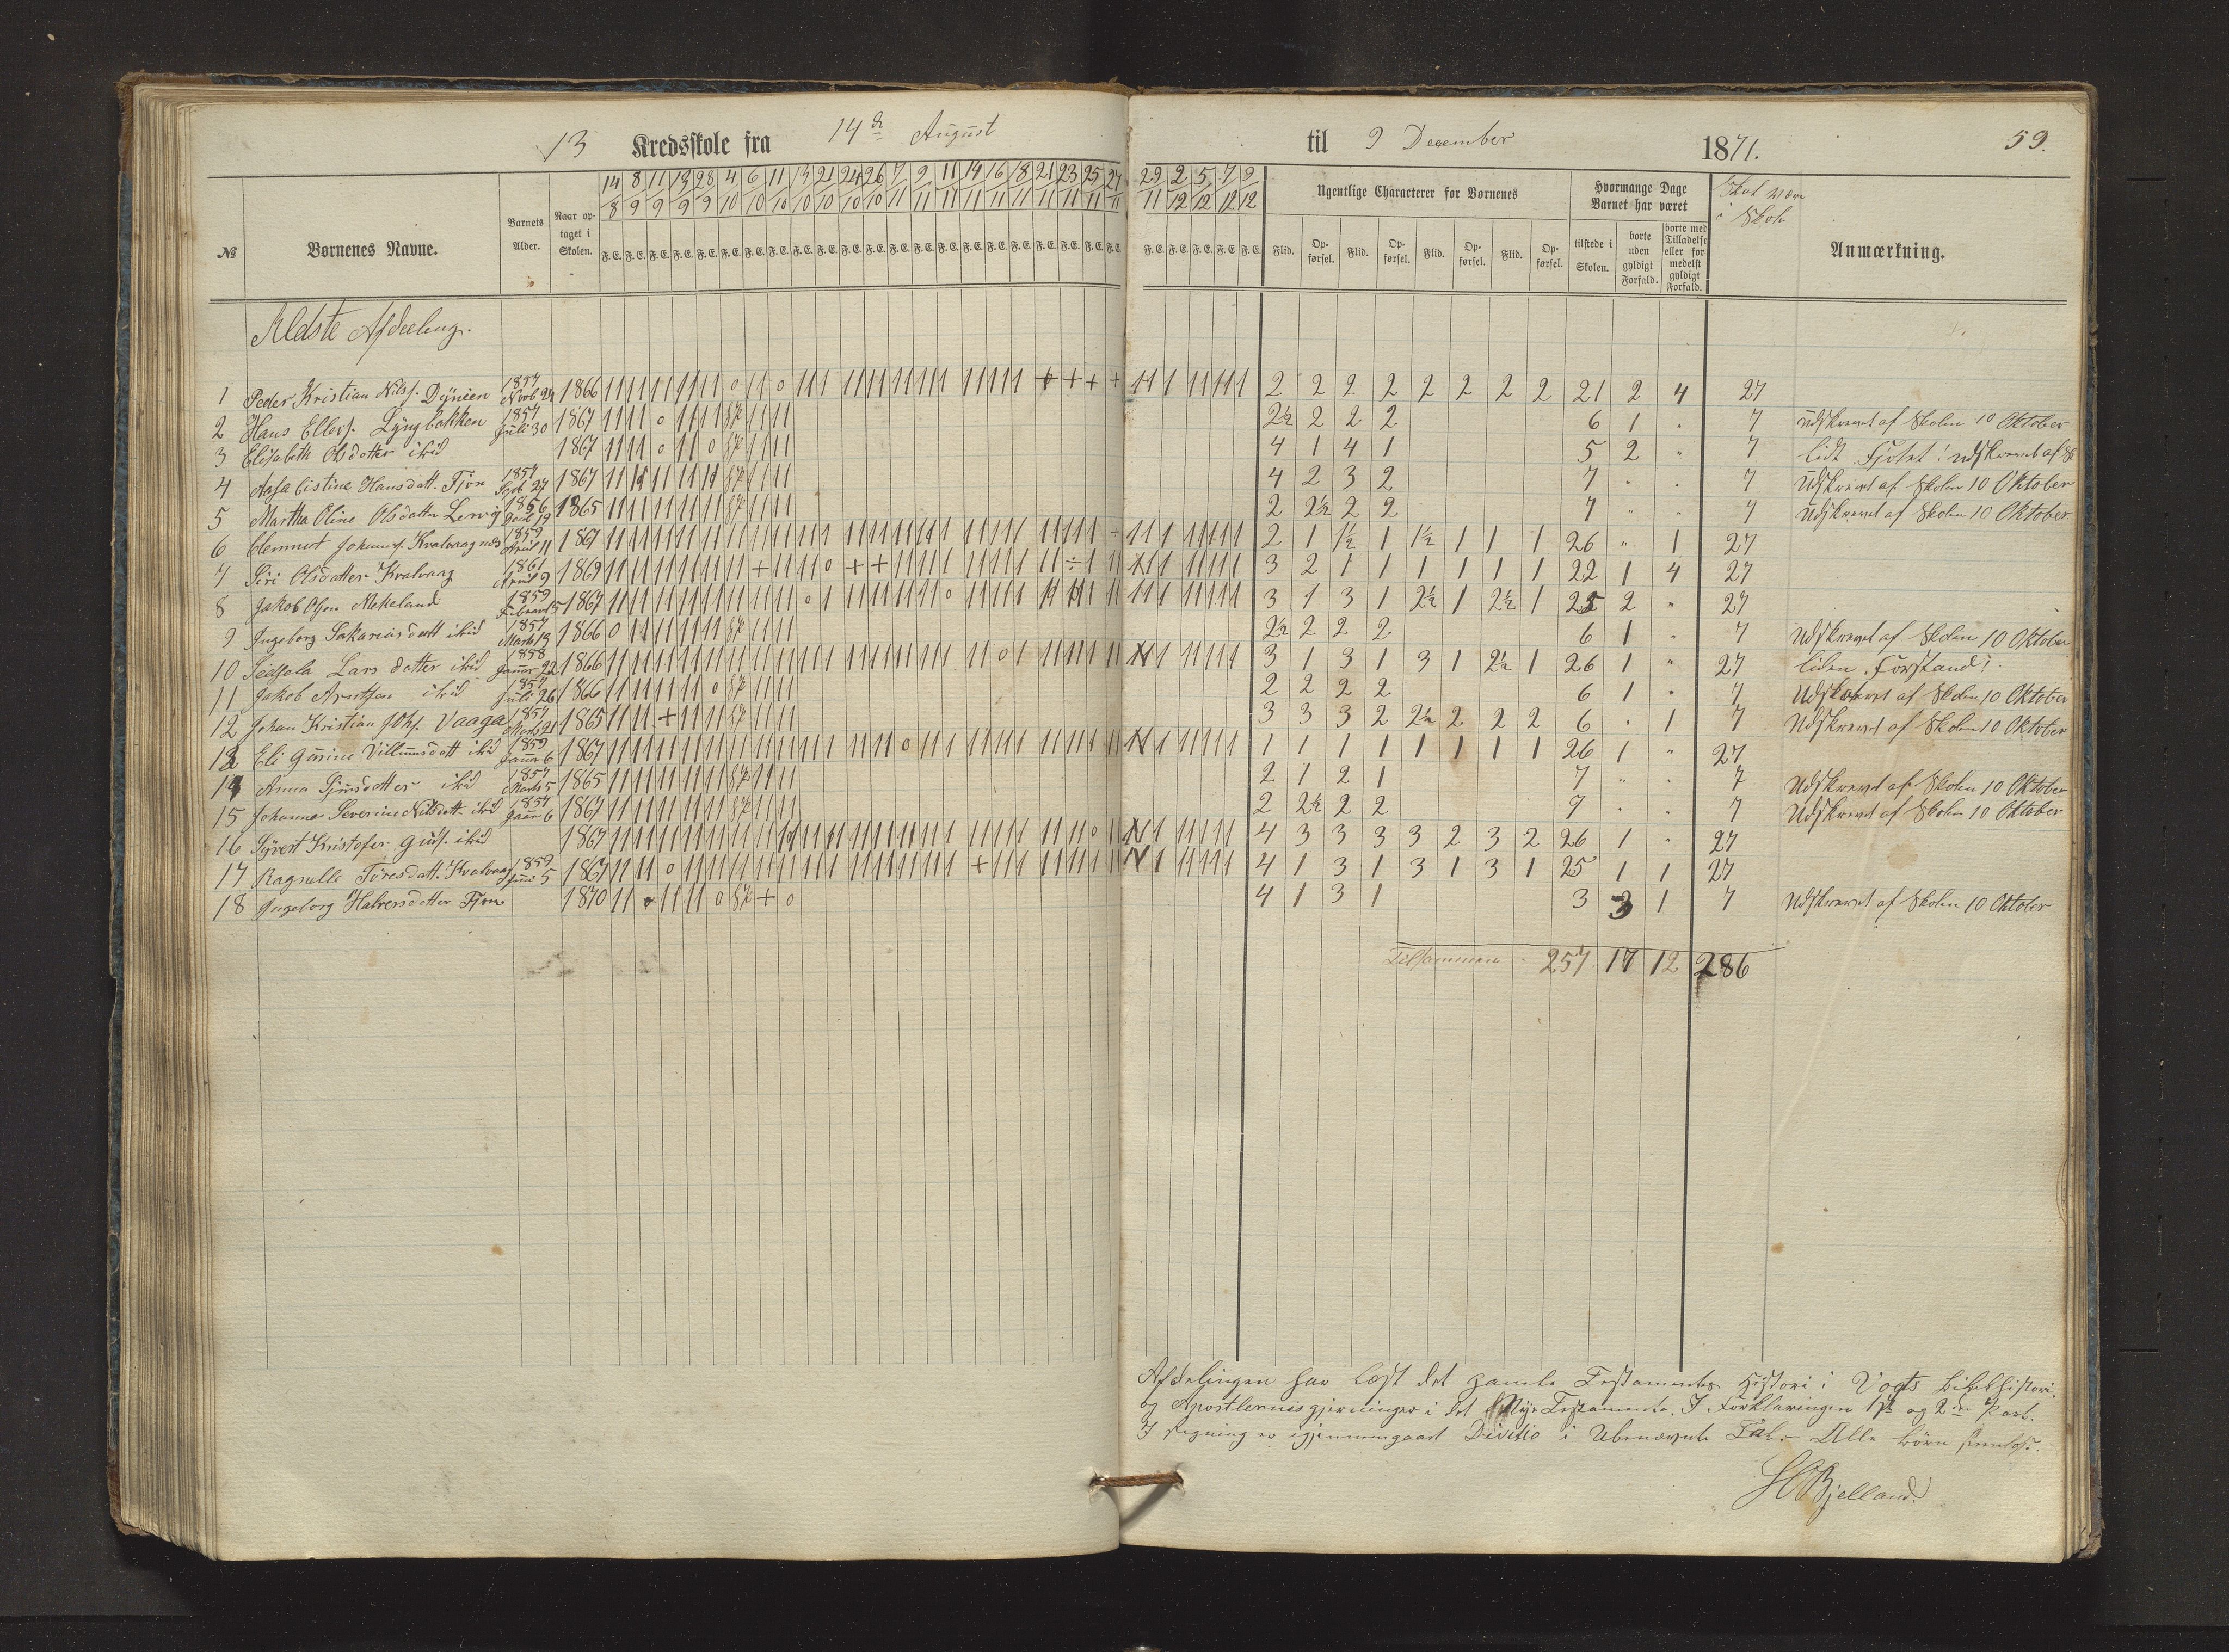 13 Kredsskole fra 14de August til 9 December 1871. 59.
14 8 11 13 28 4 6 11 14 21 24 26 7 9 11 14 16 18 21 23 25 27 29 2 5 7 9
8 9 9 9 9 10 10 10 10 10 10 10 11 11 11 11 11 11 11 11 11 11 11 12 12 12 12
№ Børnenes Navne. Barnets Alder. Naar optaget i Skolen. F.E. Ugentlige Characterer for Børnenes Flid. Opførsel. Flid. Opførsel. Flid. Opførsel. Flid. Opførsel. Hvormange Dage Barnet har været tilstede i Skolen. borte uden gyldigt Forfald. borte med Tilladelse eller formedelst gyldigt Forfald. Skal være i Skole Anmærkning.
Ældste Afdeling.
1 Peder Kristian Nilss. Dÿnien 1857 Novb 24 1866 2 2 2 2 2 2 2 2 21 2 4 27
2 Hans Ellefs. Lÿngbakken 1857 Juli 30 1867 2½ 2 2 2 6 1 " 7 Udskrevet af Skolen 10 Oktober
3 Elisabeth Olsdatter ibid 1867 4 1 4 1 5 2 " 7 lidt udskrevet af
4 Aasa Cistine Hansdatt. Fjøn 1857 27 1867 4 2 3 2 7 " " 7 Udskrevet af Skolen 10 Oktober
5 Martha Oline Olsdatter Lervig 1856 19 1865 2 2½ 2 2 7 " " 7 Udskrevet af Skolen 10 Oktober
6 Clemmet Johanns. Kvalvaagnes 1859 April 11 1867 2 1 1½ 1 1½ 1 1 1 26 " 1 27
7 Siri Olsdatter Kvalvaag 1861 April 9 1869 3 2 1 1 1 1 1 1 22 1 4 27
8 Jakob Olsen Mekeland 1859 Februar 15 1867 3 1 3 1 2½ 1 2½ 1 25 2 " 27
9 Ingeborg Sakariasdatt ibid 1857 Marts 13 1866 2½ 2 2 2 6 1 " 7 Udskrevet af Skolen 10 Oktober
10 Larsdatter ibid 1858 Januar 22 1866 3 1 3 1 3 1 2½ 1 26 1 " 27 liden Forstand!
11 Jakob Arntsen ibid 1857 Juli 26 1866 2 2 2 2 6 1 " 7 Udskrevet af Skolen 10 Oktober
12 Johan Kristian Johs. Vaaga 1857 Marts 21 1865 3 3 3 2 2½ 2 2 2 6 " 1 7 Udskrevet af Skolen 10 Oktober
13 Eli Gurine Villumsdatt ibid 1859 Januar 6 1867 1 1 1 1 1 1 1 1 26 1 " 27
14 Anna Simonsdatter ibid 1857 Marts 5 1865 2 1 2 1 7 " " 7 Udskrevet af Skolen 10 Oktober
15 Johanne Severine Nilsdatt. ibid 1857 Januar 6 1867 2 2½ 2 2 7 " " 7 Udskrevet af Skolen 10 Oktober
16 Sÿvert Kristofer ibid 1867 4 3 3 3 3 2 3 2 26 1 " 27
17 Ragnilla Toresdatt. Kvalvaag 1859 Juni 5 1867 4 1 3 1 3 1 3 1 25 1 1 27
18 Ingeborg Halversdatter Fjøn 1870 4 1 3 1 3 3 1 7 Udskrevet af Skolen 10 Oktober
Tilsammen 257 17 12 286
Afdelingen har læst det gamle Testamentes Histori i Vogts bibelhistori
og Apostlernes gjerninger i det Nÿe Testamente. I Forklaringen 1ste og 2den Part.
I regning er igjennemgaaet Divitio i Ubenævnte Tal. – Alle børn
HOBjelland.